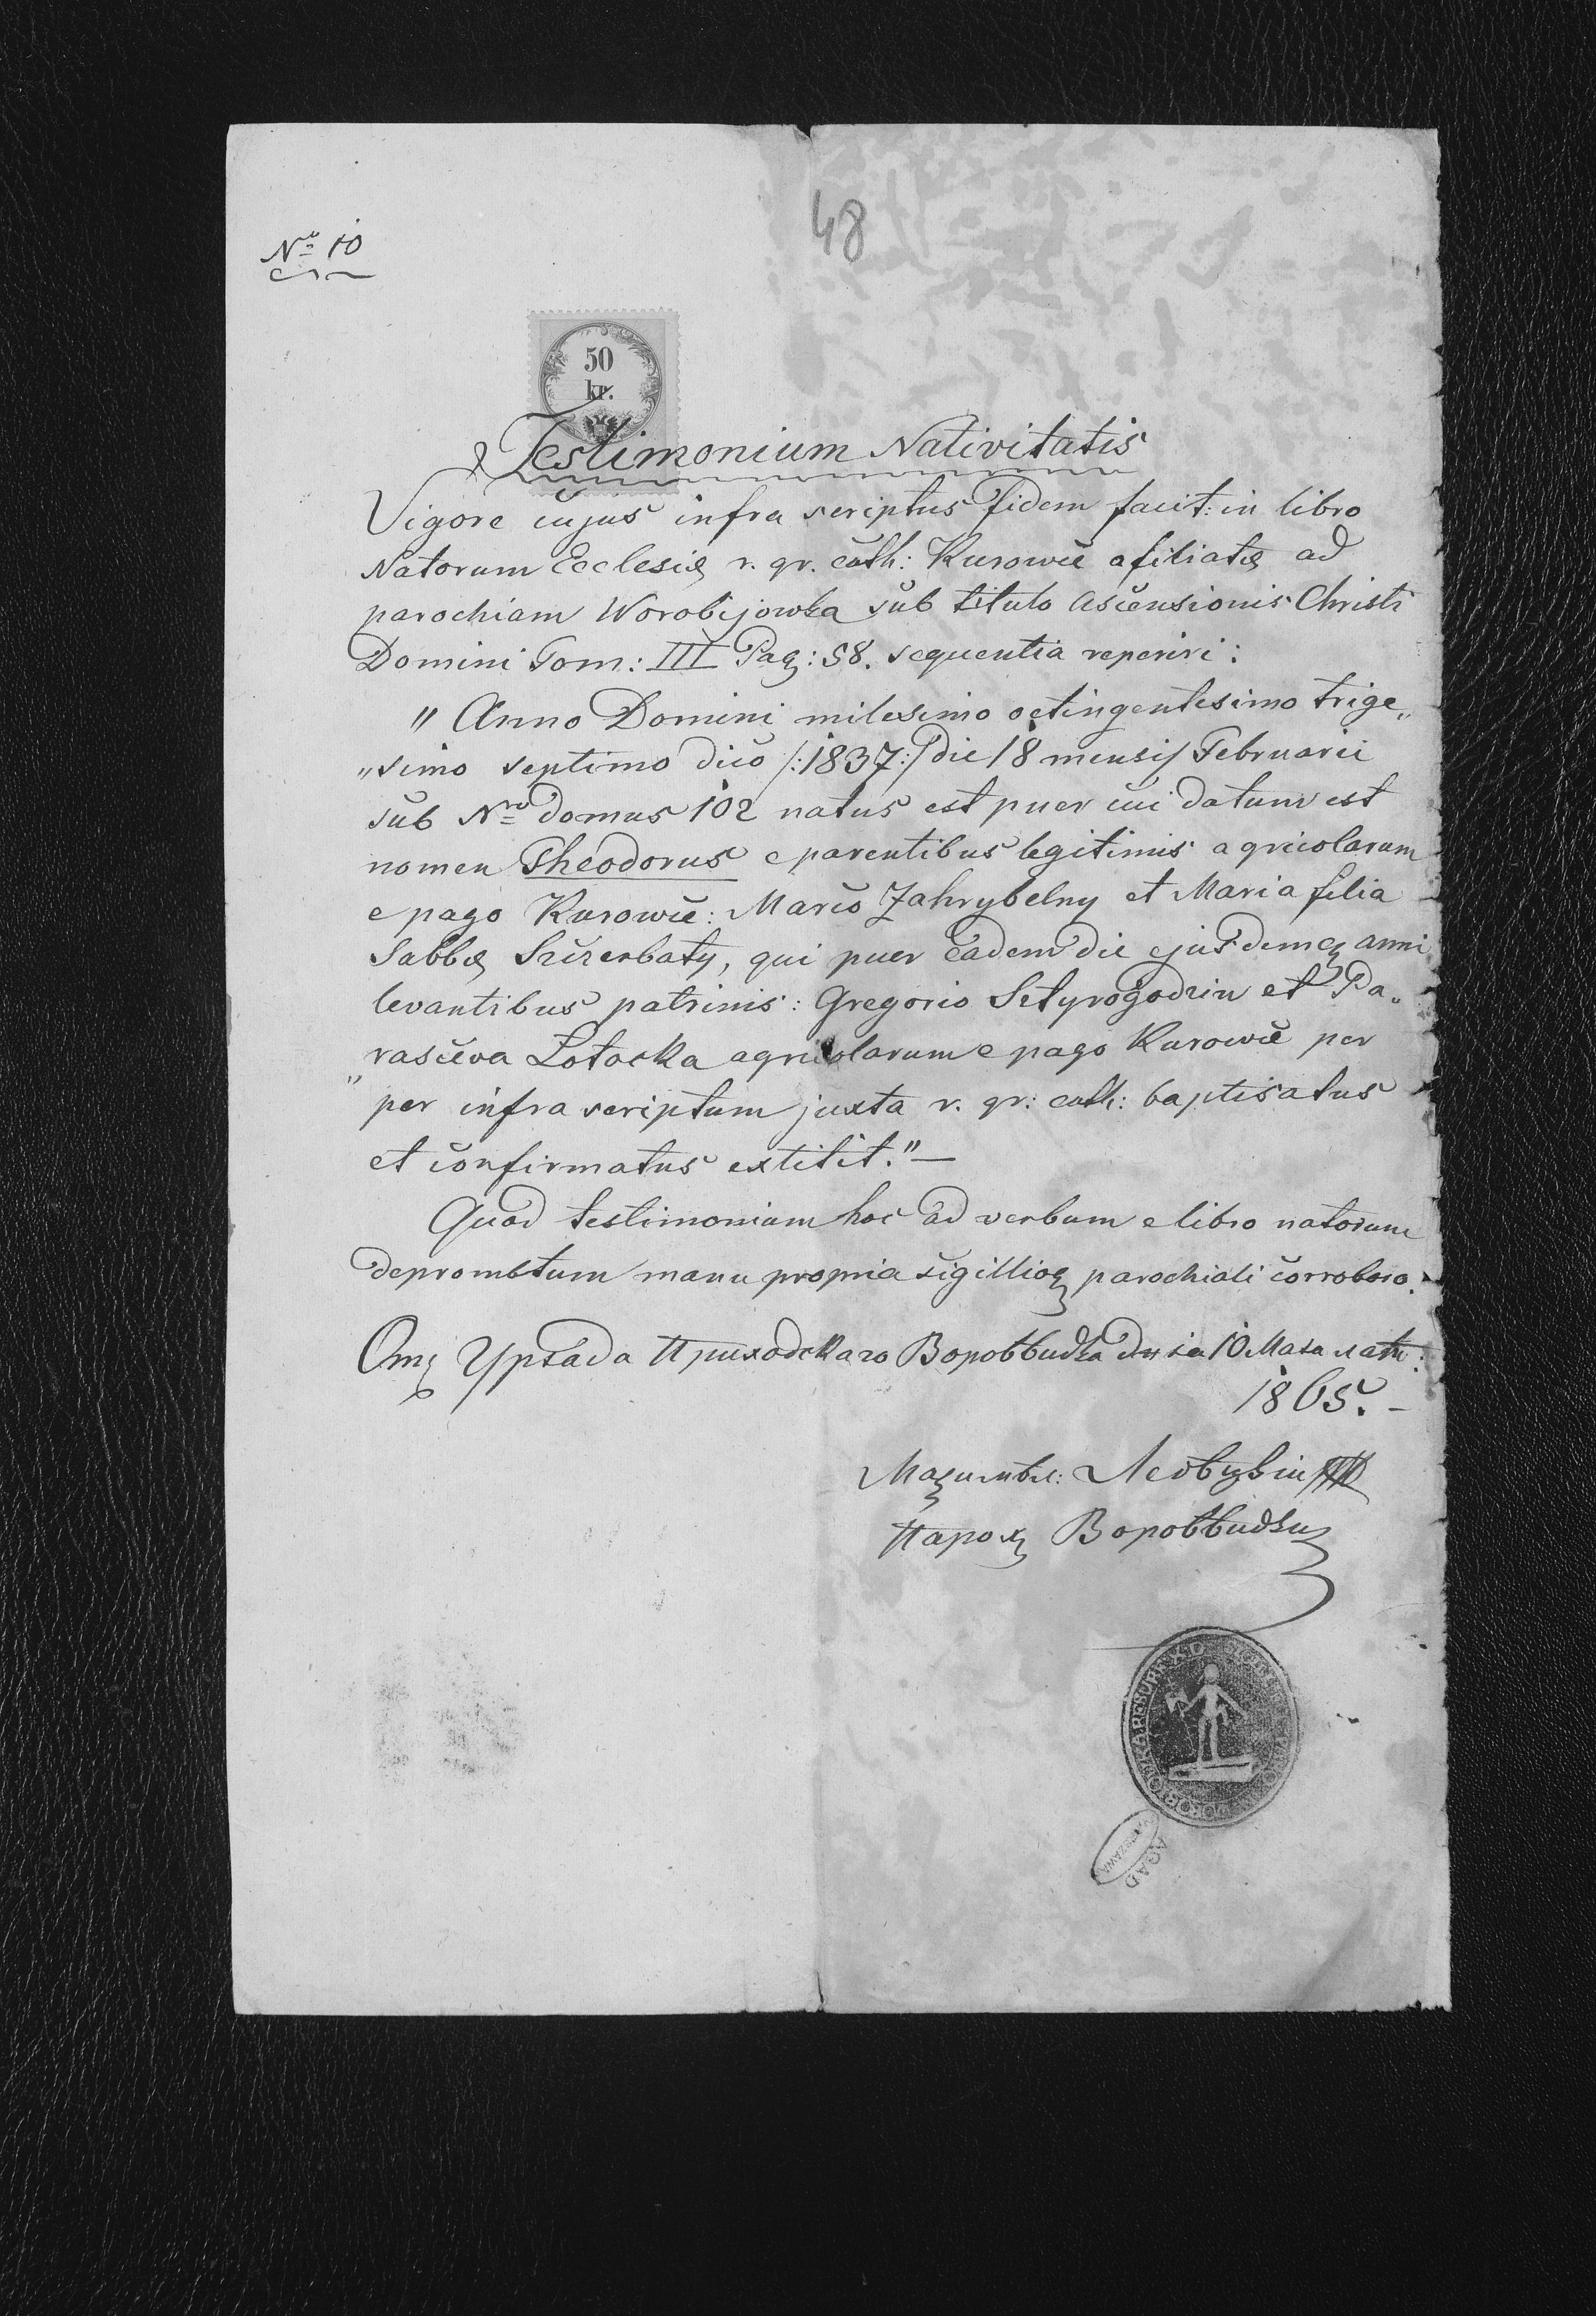 48
Nro 10
50
kr.
Testimonium Nativitatis
Vigore cujus infra scriptus fidem facit: in libro
Natorum Ecclesiæ r. gr. cath: Kurowce afiliatæ ad
parochiam Worobijowka sub titulo Ascensionis Christi
Domini Tom: III Pag: 58. sequentia reperiri:
" Anno Domini milesimo octingentesimo trige„
„simo septimo dico /:1837:/ die 18 mensis Februarii
sub Nro domus 102 natus est puer cui datum est
nomen Theodorus e parentibus legitimis agricolarum
e pago Kurowce: Marco Zahrybelny et Maria filia
Sabbæ Szczerbaty, qui puer eadem die ejusdemq anni
levantibus patrinis: Gregorio Sztyrogodzin et Pa„
„rascева Łotocka agricolarum e pago Kurowce per
per infra scriptum juxta r. gr: cath: baptisatus
et confirmatus extitit."—
Quod testimonium hoc ad verbum e libro natorum
depromtum manu propria sigilloq parochiali corroboro.
Отъ Уряда Приходскаго Воробѣивка дня 10 Мая
1865. –
Парохъ Воробѣивки
AGAD
WARSZAWA